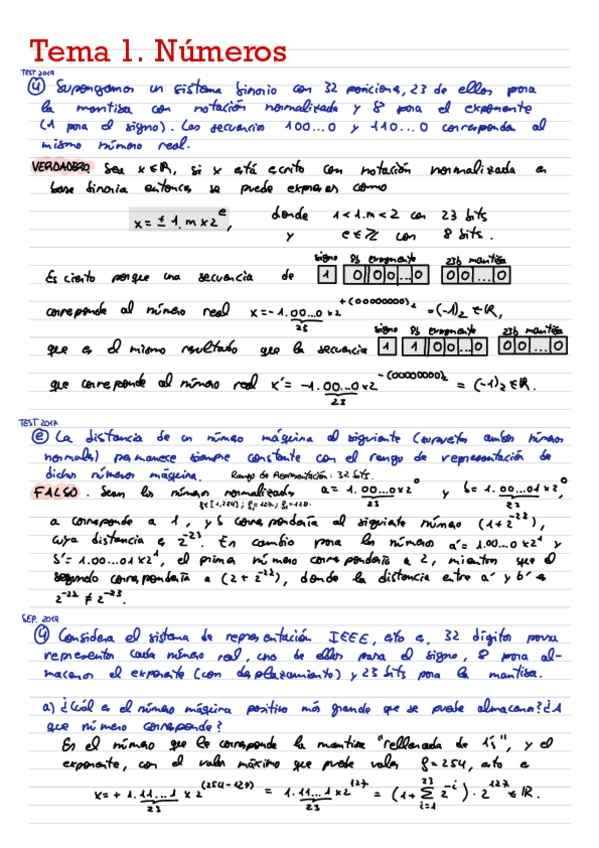 Tema 1. Números
TEST 2019
4 Supongamos un sistema binario con 32 posiciones, 23 de ellas para
la mantisa con notación normalizada y 8 para el exponente
(1 para el signo). Las secuencias 100...0 y 110...0 corresponden al
mismo número real.
VERDADERO Sea x∈ℝ, si x está escrito con notación normalizada en
base binaria entonces se puede expresar como
x = ± 1.m x 2^e, donde 1 < 1.m < 2 con 23 bits
y e∈ℤ con 8 bits.
signo 8b exponente 23b mantisa
Es cierto porque una secuencia de 1 0 0 0 ... 0 0 0 ... 0
corresponde al número real x = -1.00...0 x 2^+(0000000)₂ = (-1)₂ ∈ ℝ,
23
signo 8b exponente 23b mantisa
que es el mismo resultado que la secuencia 1 1 0 0 ... 0 0 0 ... 0
que corresponde al número real x' = -1.00...0 x 2^-(0000000)₂ = (-1)₂ ∈ ℝ.
23
TEST 2017
e La distancia de un número máquina al siguiente (supuestos ambos números
normales) permanece siempre constante con el rango de representación de
dichos números máquina. Rango de Representación: 32 bits.
FALSO. Sean los números normalizados a = 1.00...0 x 2^0 y b = 1.00...01 x 2^0,
23 23
a corresponde a 1, y b correspondería al siguiente número (1 + 2^-23),
cuya distancia es 2^-23. En cambio para los números a' = 1.00...0 x 2^1 y
b' = 1.00...01 x 2^1, el primer número correspondería a 2, mientras que el
segundo correspondería a (2 + 2^-22), donde la distancia entre a' y b' es
2^-22 ≠ 2^-23.
SEP. 2019
4 Considera el sistema de representación IEEE, esto es, 32 dígitos para
representar cada número real, uno de ellos para el signo, 8 para al-
macenar el exponente (con desplazamiento) y 23 bits para la mantisa.
a) ¿Cuál es el número máquina positivo más grande que se puede almacenar? ¿A
que número corresponde?
Es el número que le corresponde la mantisa "rellenada de 1's", y el
exponente, con el valor máximo que puede valer f = 254, esto es
x = + 1.11...1 x 2^(254-127) = 1.11...1 x 2^127 = (1 + Σ 2^-i) · 2^127 ∈ ℝ.
23 23 i=1 23